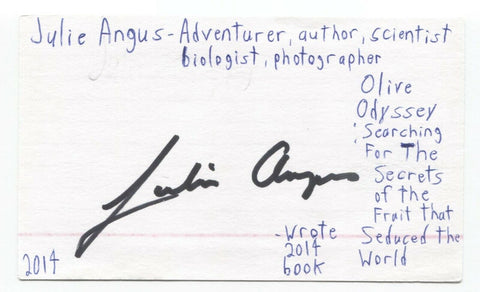 Julie Angus-Adventurer, author, scientist
biologist, photographer
Olive
Odyssey
: Searching
For The
Secrets
of the
Fruit that
Seduced the
World
Julie Angus
-wrote
2014
book
2014